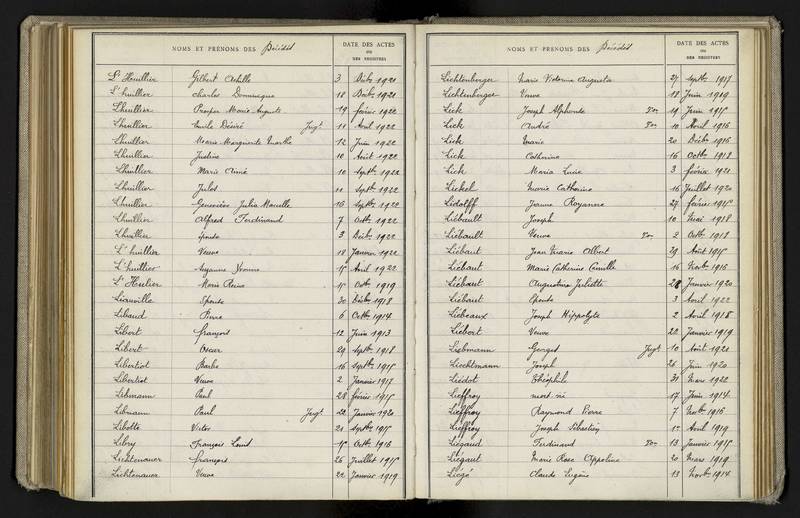 NOMS ET PRÉNOMS DES Décédés
DATE DES ACTES
OU
DES REGISTRES
L'Huillier Gilbert Achille 3 Déc. 1921
L'huillier Charles Dominique 18 Déc. 1921
Lhuillier Prosper Marie Auguste 19 février 1922
Lhuillier Emile Désiré Jugt 11 Avril 1922
Lhuillier Marie Marguerite Marthe 12 Juin 1922
Lhuillier Justine 10 Août 1922
Lhuillier Marie Aimé 10 Septbre 1922
Lhuillier Jules 11 Septbre 1922
Lhuillier Geneviève Julia Marcelle 16 Septbre 1922
Lhuillier Alfred Ferdinand 7 Octbre 1922
Lhuillier épouse 3 Décbre 1922
L'huillier Veuve 18 Janvier 1922
L'huillier Suzanne Yvonne 15 Avril 1922
L'Hulier Marie 15 Octbre 1919
Liauville Epouse 30 Décbre 1918
Libaud Pierre 6 Octbre 1914
Libert François 12 Juin 1913
Libert Oscar 29 Septbre 1918
Libertiot Barbe 16 Septbre 1915
Libertiot Veuve 2 Janvier 1917
Libmann Paul 28 février 1915
Libmann Paul Jugt 22 Janvier 1920
Libotte Victor 21 Septbre 1915
Libry François Louis 15 Octbre 1916
Lichtenauer François 26 Juillet 1915
Lichtenauer Veuve 22 Janvier 1919
NOMS ET PRÉNOMS DES Décédés
DATE DES ACTES
OU
DES REGISTRES
Lichtenberger Marie Victorine Augusta 27 Septbre 1917
Lichtenberger Veuve 18 Juin 1919
Lick Joseph Alphonse 19 Juin 1915
Lick André 10 Avril 1916
Lick Marie 20 Décbre 1916
Lick Catherine 16 Octbre 1918
Lick Maria Lucie 3 février 1921
Lickel Marie Catherine 16 Juillet 1920
Lidolff Jeanne 27 février 1915
Liébault Joseph 10 Mai 1918
Liébault Veuve 2 Octbre 1918
Liébaut Jean Marie Albert 29 Août 1915
Liébaut Marie Catherine Camille 16 Novbre 1916
Liébaut Augustine Juliette 28 Janvier 1920
Liébaut Epouse 3 Avril 1922
Liébeaux Joseph Hippolyte 2 Avril 1918
Liébert Veuve 22 Janvier 1919
Liebmann Georges Jugt 10 Août 1921
Liechtmann Joseph 21 Juin 1920
Liédot Théophile 31 Mars 1922
Lieffroy mort-né 17 Juin 1914
Lieffroy Raymond Pierre 7 Novbre 1916
Lieffroy Joseph Sébastien 1er Avril 1919
Liégaud Ferdinand 13 Janvier 1915
Liégaut Marie Rose Appoline 20 Mars 1919
Liégé Claude Eugène 13 Novbre 1914